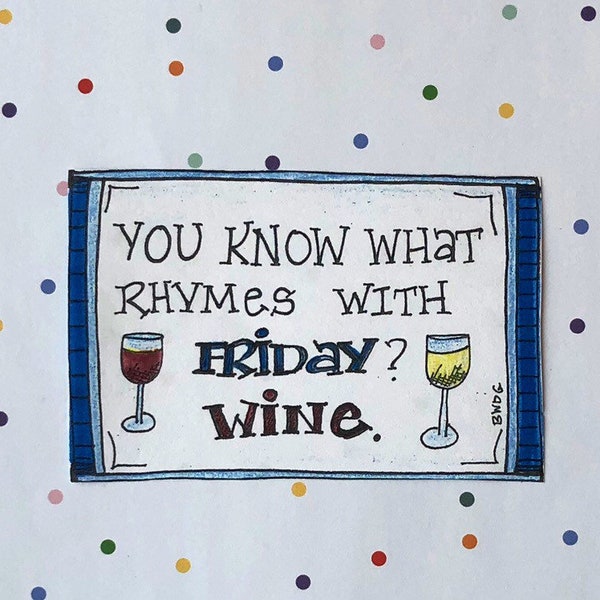 YOU KNOW WHAT
RHYMES WITH
FRIDAY?
WINE.
BWDG